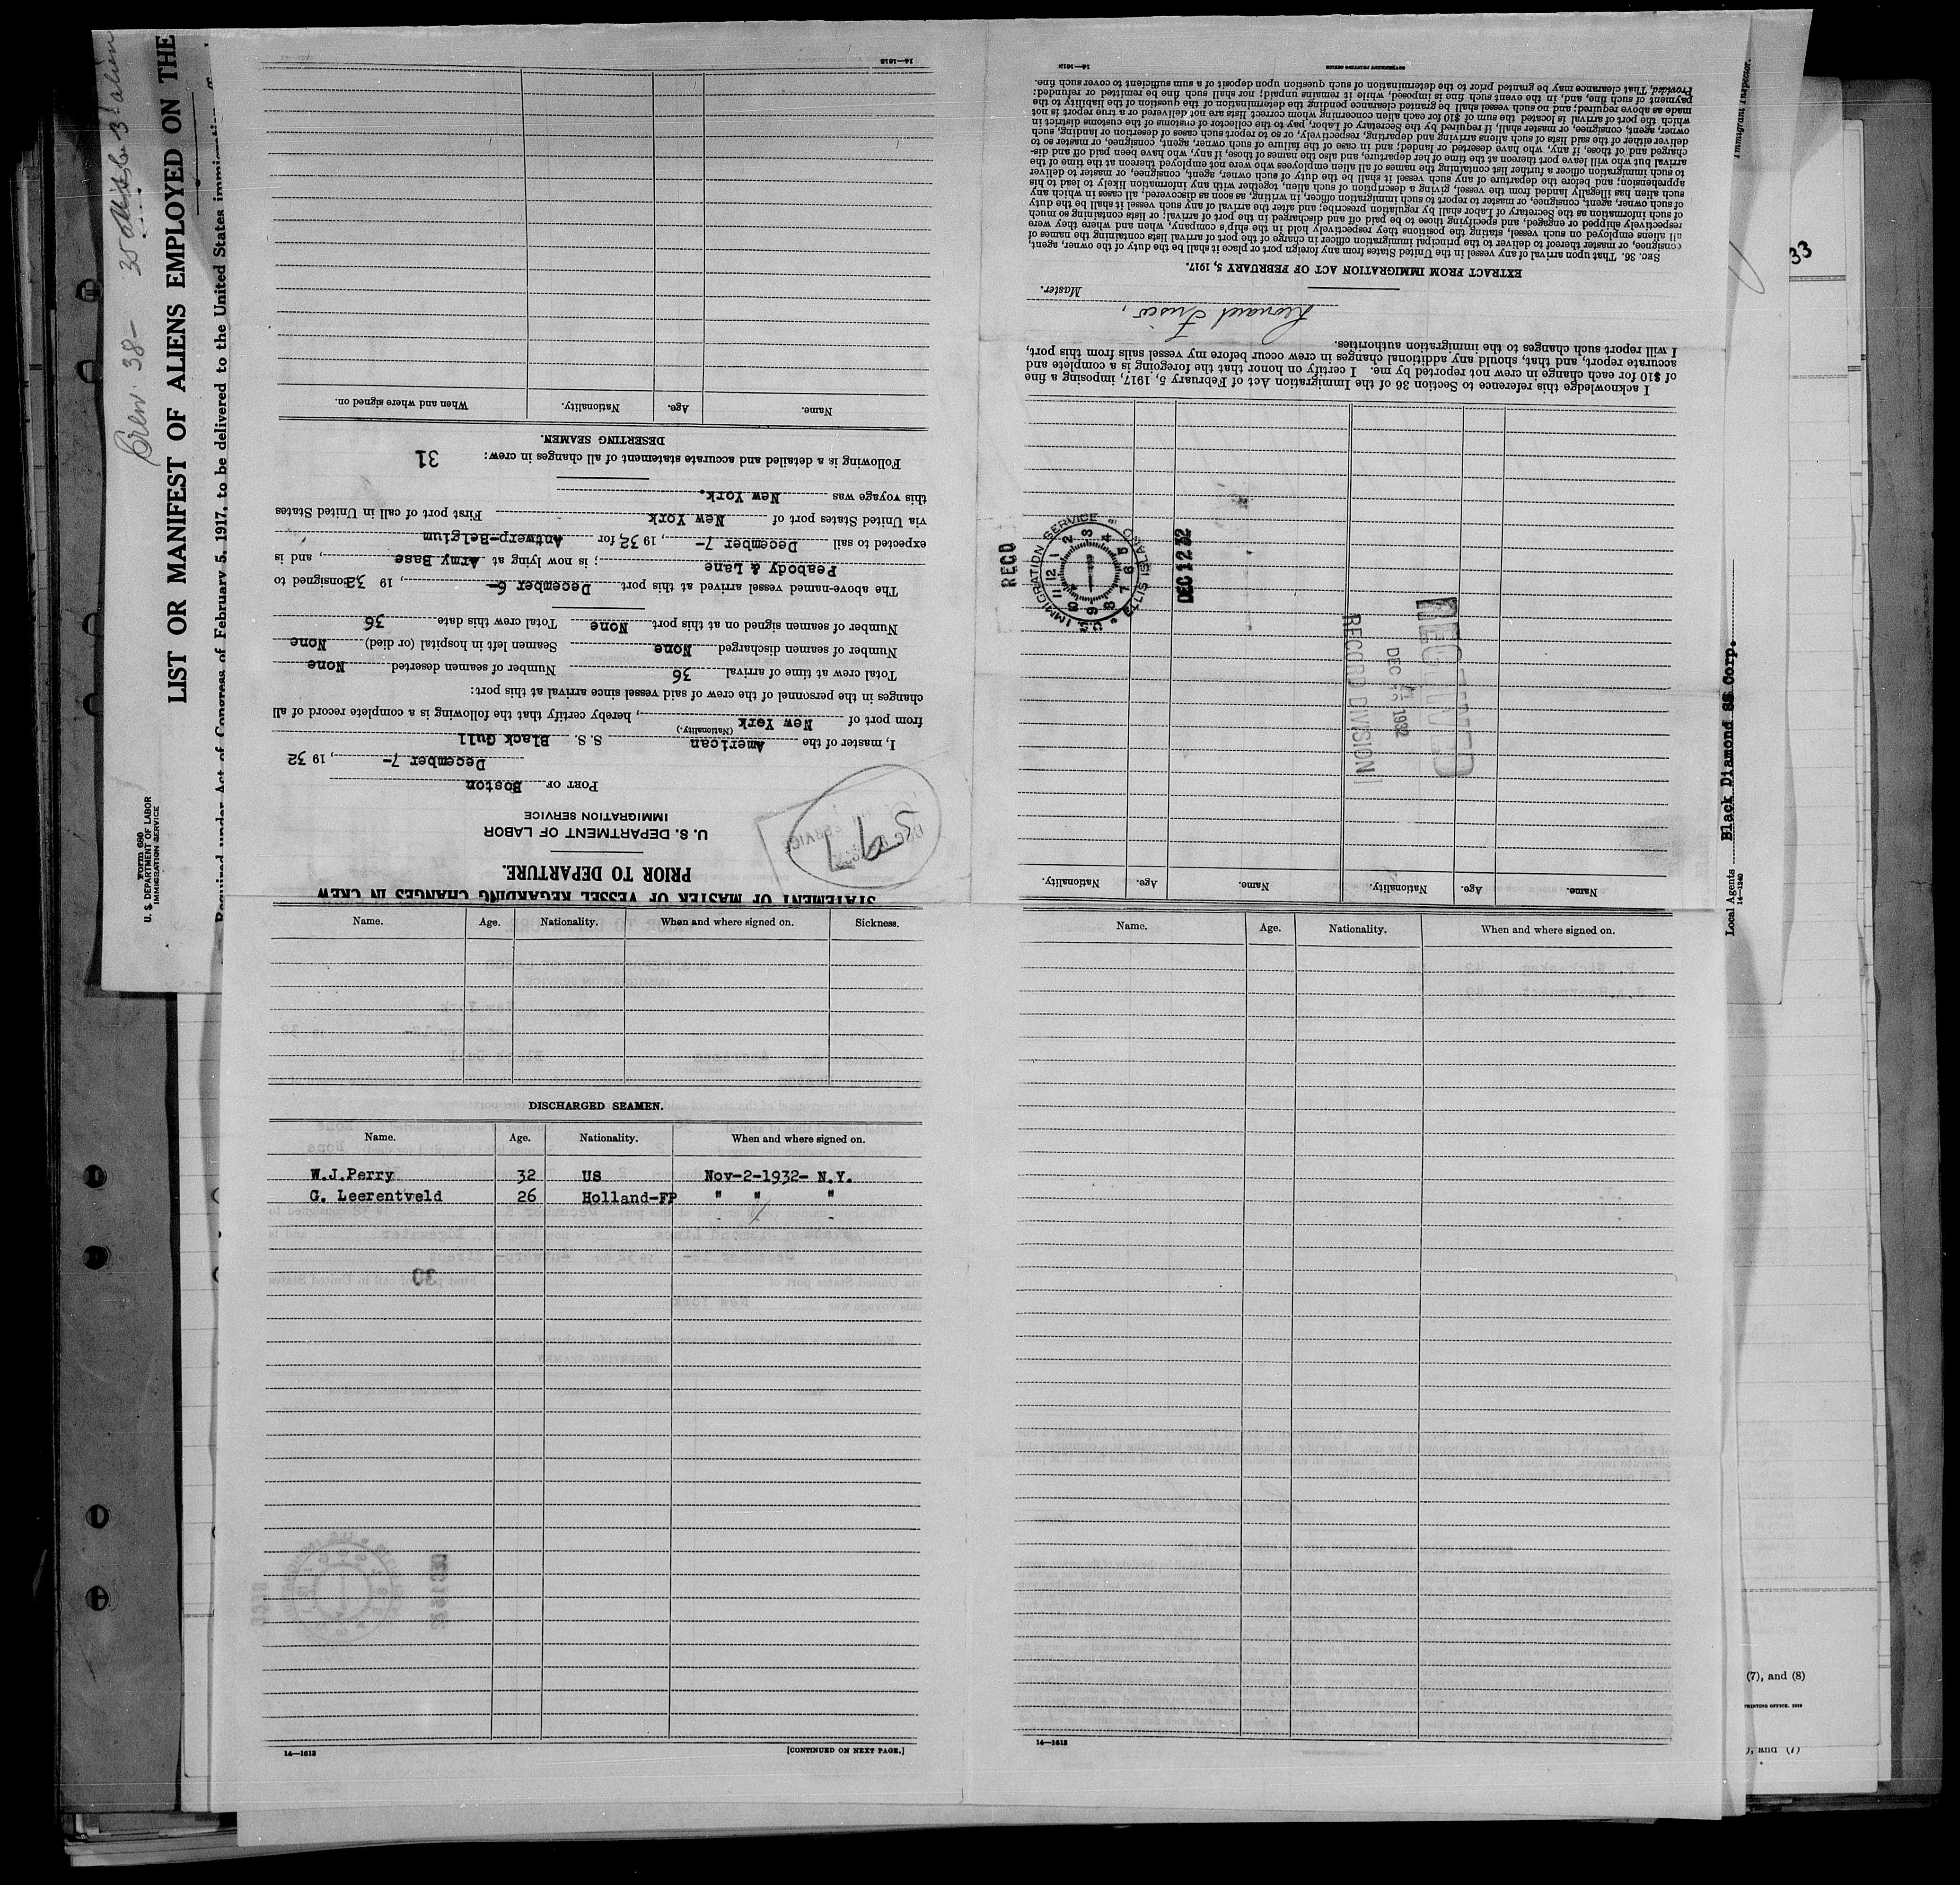 Crew. 38-
LIST OR MANIFEST OF ALIENS EMPLOYED ON THE
Required under Act of Congress of February 5, 1917, to be delivered to the United States immigration
Form 680
U. S. DEPARTMENT OF LABOR
IMMIGRATION SERVICE
STATEMENT OF MASTER OF VESSEL REGARDING CHANGES IN CREW
PRIOR TO DEPARTURE.
U. S. DEPARTMENT OF LABOR
IMMIGRATION SERVICE
PORT OF Boston
December 7-, 19 32
I, master of the American S. S. Black Gull
(Nationality.)
from port of New York, hereby certify that the following is a complete record of all
changes in the personnel of the crew of said vessel since arrival at this port:
Total crew at time of arrival 36 Number of seamen deserted None
Number of seamen discharged None Seamen left in hospital (or died) None
Number of seamen signed on at this port None Total crew this date 36
The above-named vessel arrived at this port December 6-, 19 32 consigned to
Peabody & Lane; is now lying at Army Base, and is
expected to sail December 7-, 19 32 for Antwerp-Belgium
via United States port of New York First port of call in United States
this voyage was New York.
Following is a detailed and accurate statement of all changes in crew: 31
DESERTING SEAMEN.
Name. Age. Nationality. When and where signed on.
14—1613
Name. Age. Nationality. Name. Age. Nationality.
RECEIVED
DEC 1932
RECORD DIVISION
REC'D
U.S. IMMIGRATION SERVICE ELLIS ISLAND
1 2 3 4 5 6 7 8 9 10 11 12
DEC 12 32
I acknowledge this reference to Section 36 of the Immigration Act of February 5, 1917, imposing a fine
of $10 for each change in crew not reported by me. I certify on honor that the foregoing is a complete and
accurate report, and that, should any additional changes in crew occur before my vessel sails from this port,
I will report such changes to the immigration authorities.
Leonard Fusco,
Master.
EXTRACT FROM IMMIGRATION ACT OF FEBRUARY 5, 1917.
SEC. 36. That upon arrival of any vessel in the United States from any foreign port or place it shall be the duty of the owner, agent,
consignee, or master thereof to deliver to the principal immigration officer in charge of the port of arrival lists containing the names of
all aliens employed on such vessel, stating the positions they respectively hold in the ship's company, when and where they were
respectively shipped or engaged, and specifying those to be paid off and discharged in the port of arrival; or lists containing so much
of such information as the Secretary of Labor shall by regulation prescribe; and after the arrival of any such vessel it shall be the duty
of such owner, agent, consignee, or master to report to such immigration officer, in writing, as soon as discovered, all cases in which any
such alien has illegally landed from the vessel, giving a description of such alien, together with any information likely to lead to his
apprehension; and before the departure of any such vessel it shall be the duty of such owner, agent, consignee, or master to deliver
to such immigration officer a further list containing the names of all alien employees who were not employed thereon at the time of the
arrival but who will leave port thereon at the time of her departure, and also the names of those, if any, who have been paid off and dis-
charged and of those, if any, who have deserted or landed; and in case of the failure of such owner, agent, consignee, or master so to
deliver either of the said lists of such aliens arriving and departing, respectively, or so to report such cases of desertion or landing, such
owner, agent, consignee, or master shall, if required by the Secretary of Labor, pay to the collector of customs of the customs district in
which the port of arrival is located the sum of $10 for each alien concerning whom correct lists are not delivered or a true report is not
made as above required; and no such vessel shall be granted clearance pending the determination of the question of the liability to the
payment of such fine, and, in the event such fine is imposed, while it remains unpaid; nor shall such fine be remitted or refunded:
Provided, That clearance may be granted prior to the determination of such question upon deposit of a sum sufficient to cover such fine.
GOVERNMENT PRINTING OFFICE
14—1613
Name. Age. Nationality. When and where signed on. Sickness.
DISCHARGED SEAMEN.
Name. Age. Nationality. When and where signed on.
W.J.Perry 32 US Nov-2-1932- N.Y.
G. Leerentveld 26 Holland-FP " " "
30
14—1613
[CONTINUED ON NEXT PAGE.]
Name. Age. Nationality. When and where signed on.
14—1613
Immigrant Inspector.
Local Agents Black Diamond SS Corp.
14—1240
33
(7), and (8)
PRINTING OFFICE. 1929
), and (7)